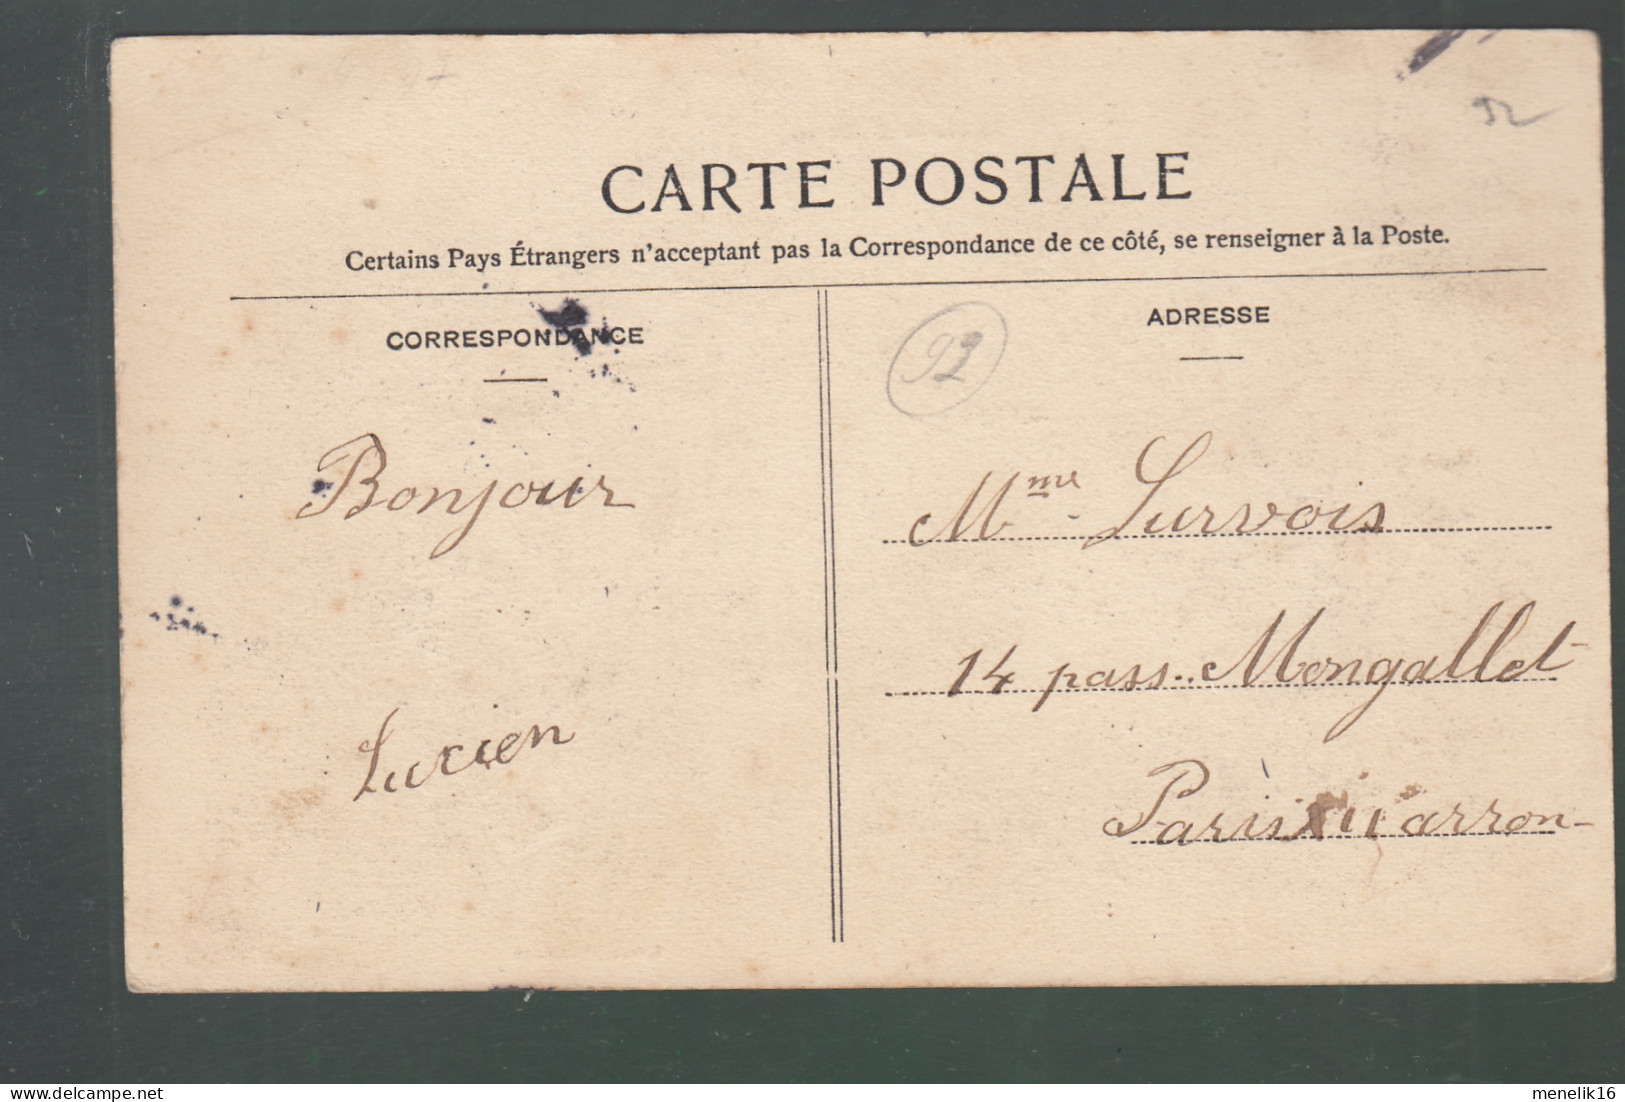 92
CARTE POSTALE
Certains Pays Étrangers n'acceptant pas la Correspondance de ce côté, se renseigner à la Poste.
CORRESPONDANCE
Bonjour
Lucien
ADRESSE
92
Mme Survois
14 pass. Mongallet
Paris XII arron-
menelik16